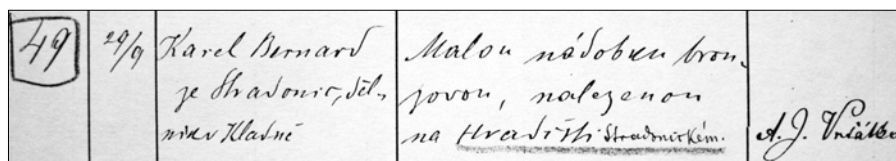 49
29/9
Karel Bernard
ze Stradonic, děl-
ník v Kladně
Malou nádobku bron-
zovou, nalezenou
na Hradišti Stradonickém.
A. J. Vrťátko